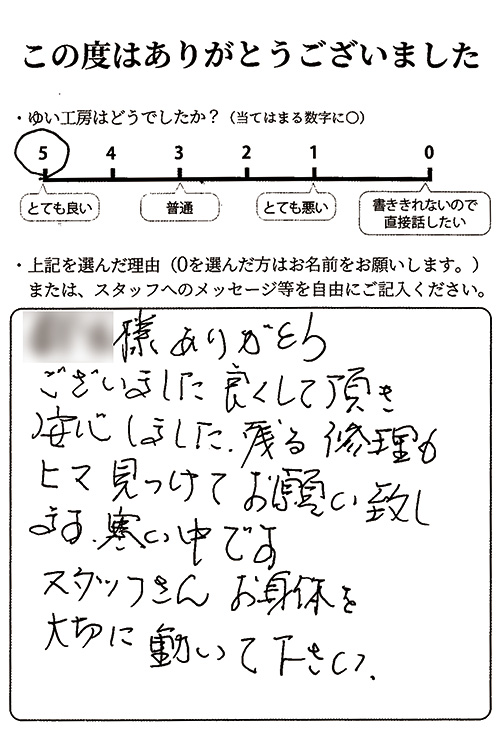 この度はありがとうございました
・ゆい工房はどうでしたか？（当てはまる数字に○）
5 4 3 2 1 0
とても良い 普通 とても悪い 書ききれないので直接話したい
・上記を選んだ理由（0を選んだ方はお名前をお願いします。）
または、スタッフへのメッセージ等を自由にご記入ください。
様ありがとう
ございました良くして頂き
安心しました.残る修理も
ヒマ見つけてお願い致し
ます.寒い中です
スタッフさんお身体を
大切に動いて下さい.